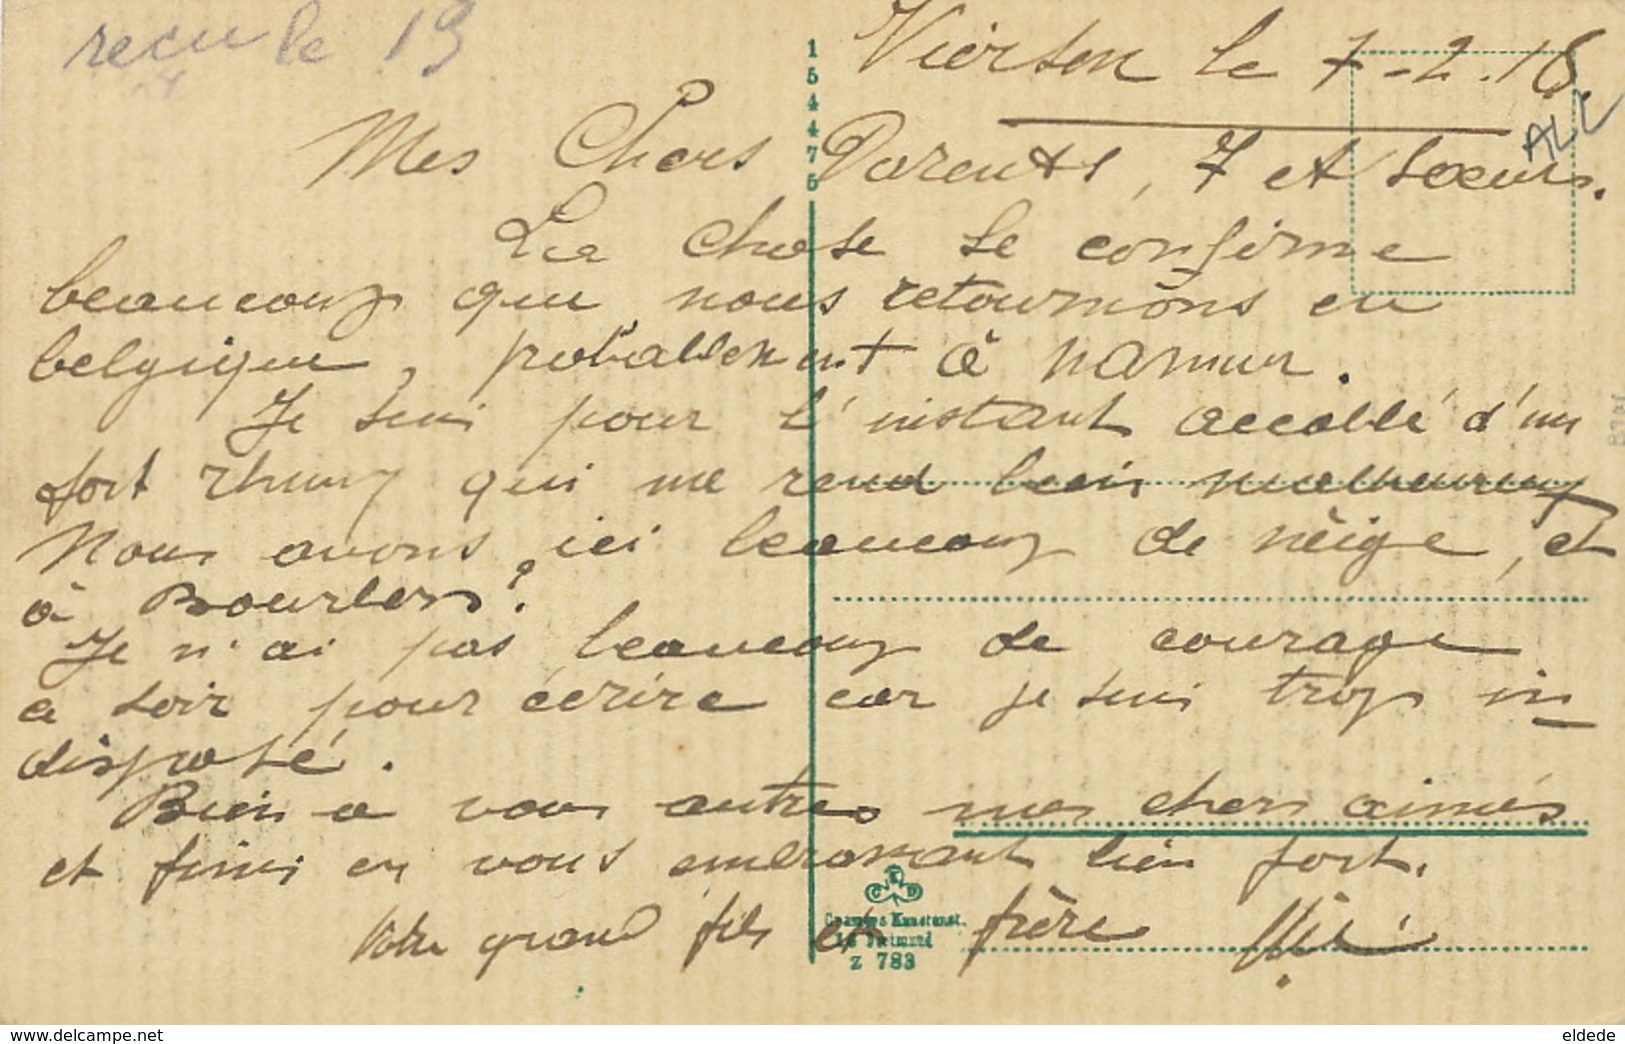 recu le 19
Viersen le 7-2.
ALL
Mes Chers Parents, 7 et soeurs.
La chose se confirme
beaucoup que nous retournons en
belgique, probablement à namur.
Je suis pour l'instant accablé d'un
fort rhum qui me rend bein malheureux
Nous avons ici beaucoup de nèige, et
à Bourlers?
Je n'ai pas beaucoup de courage
ce soir pour écrire car je suis trop in
disposé.
Bien a vous autres mes chers aimés
et finis en vous embrassant bien fort.
Votre grand fils et frère
154475
CKD
Cramers Kunstanst.
Dortmund
Z 783
www.delcampe.net
eldede